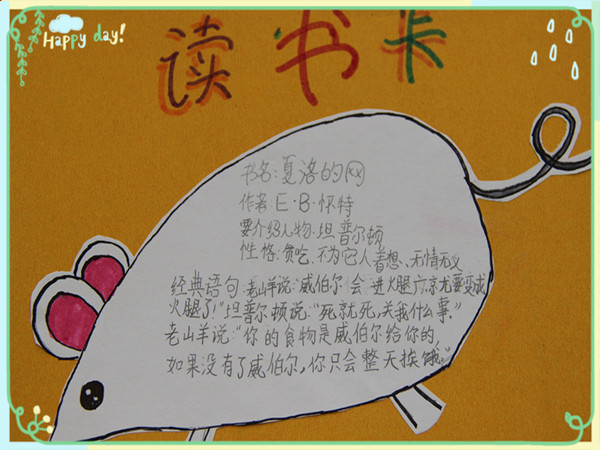 Happy day!
读书卡
书名:夏洛的网
作者 E·B·怀特
要介绍人物:坦普尔顿
性格:贪吃、不为它人着想、无情无义
经典语句:老山羊说:“威伯尔会进火腿厂,
火腿了!”坦普尔顿说:“死就死,关我什么事。”
老山羊说:“你的食物是威伯尔给你的,
如果没有了威伯尔,你只会整天挨饿。”